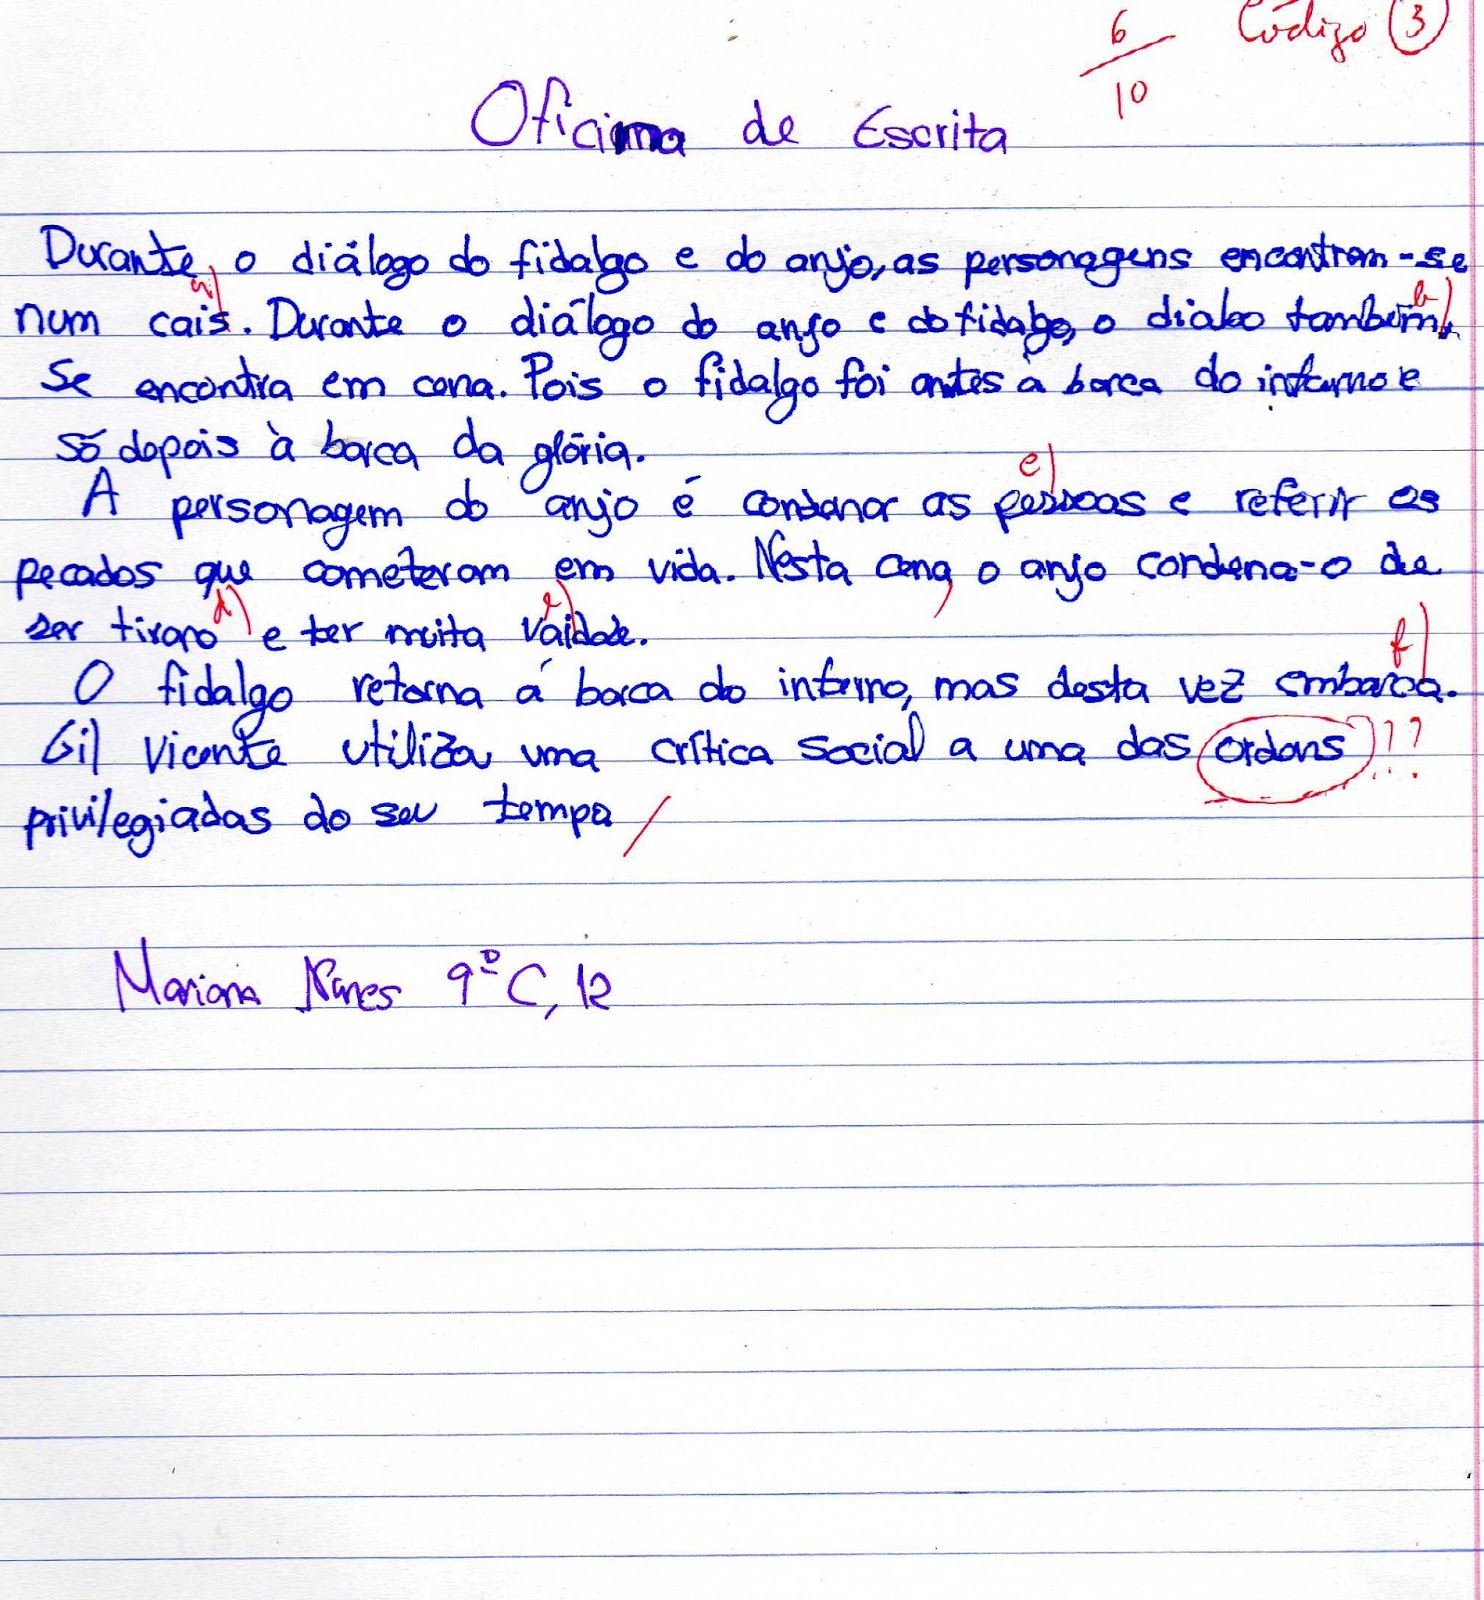 6/10 Código 3
Oficina de Escrita
Durante o diálogo do fidalgo e do anjo, as personagens encontram-se
a)
num cais. Durante o diálogo do anjo e do fidalgo, o diabo também b)
se encontra em cena. Pois o fidalgo foi antes à barca do inferno e
só depois à barca da glória.
c)
A personagem do anjo é condenar as pessoas e referir os
pecados que cometeram em vida. Nesta cena, o anjo condena-o de
d) e)
ser tirano e ter muita vaidade.
f)
O fidalgo retorna á barca do inferno, mas desta vez embarca.
Gil Vicente utiliza uma crítica social a uma das ordens !??
privilegiadas do seu tempo
Mariana Nunes 9º C, 12